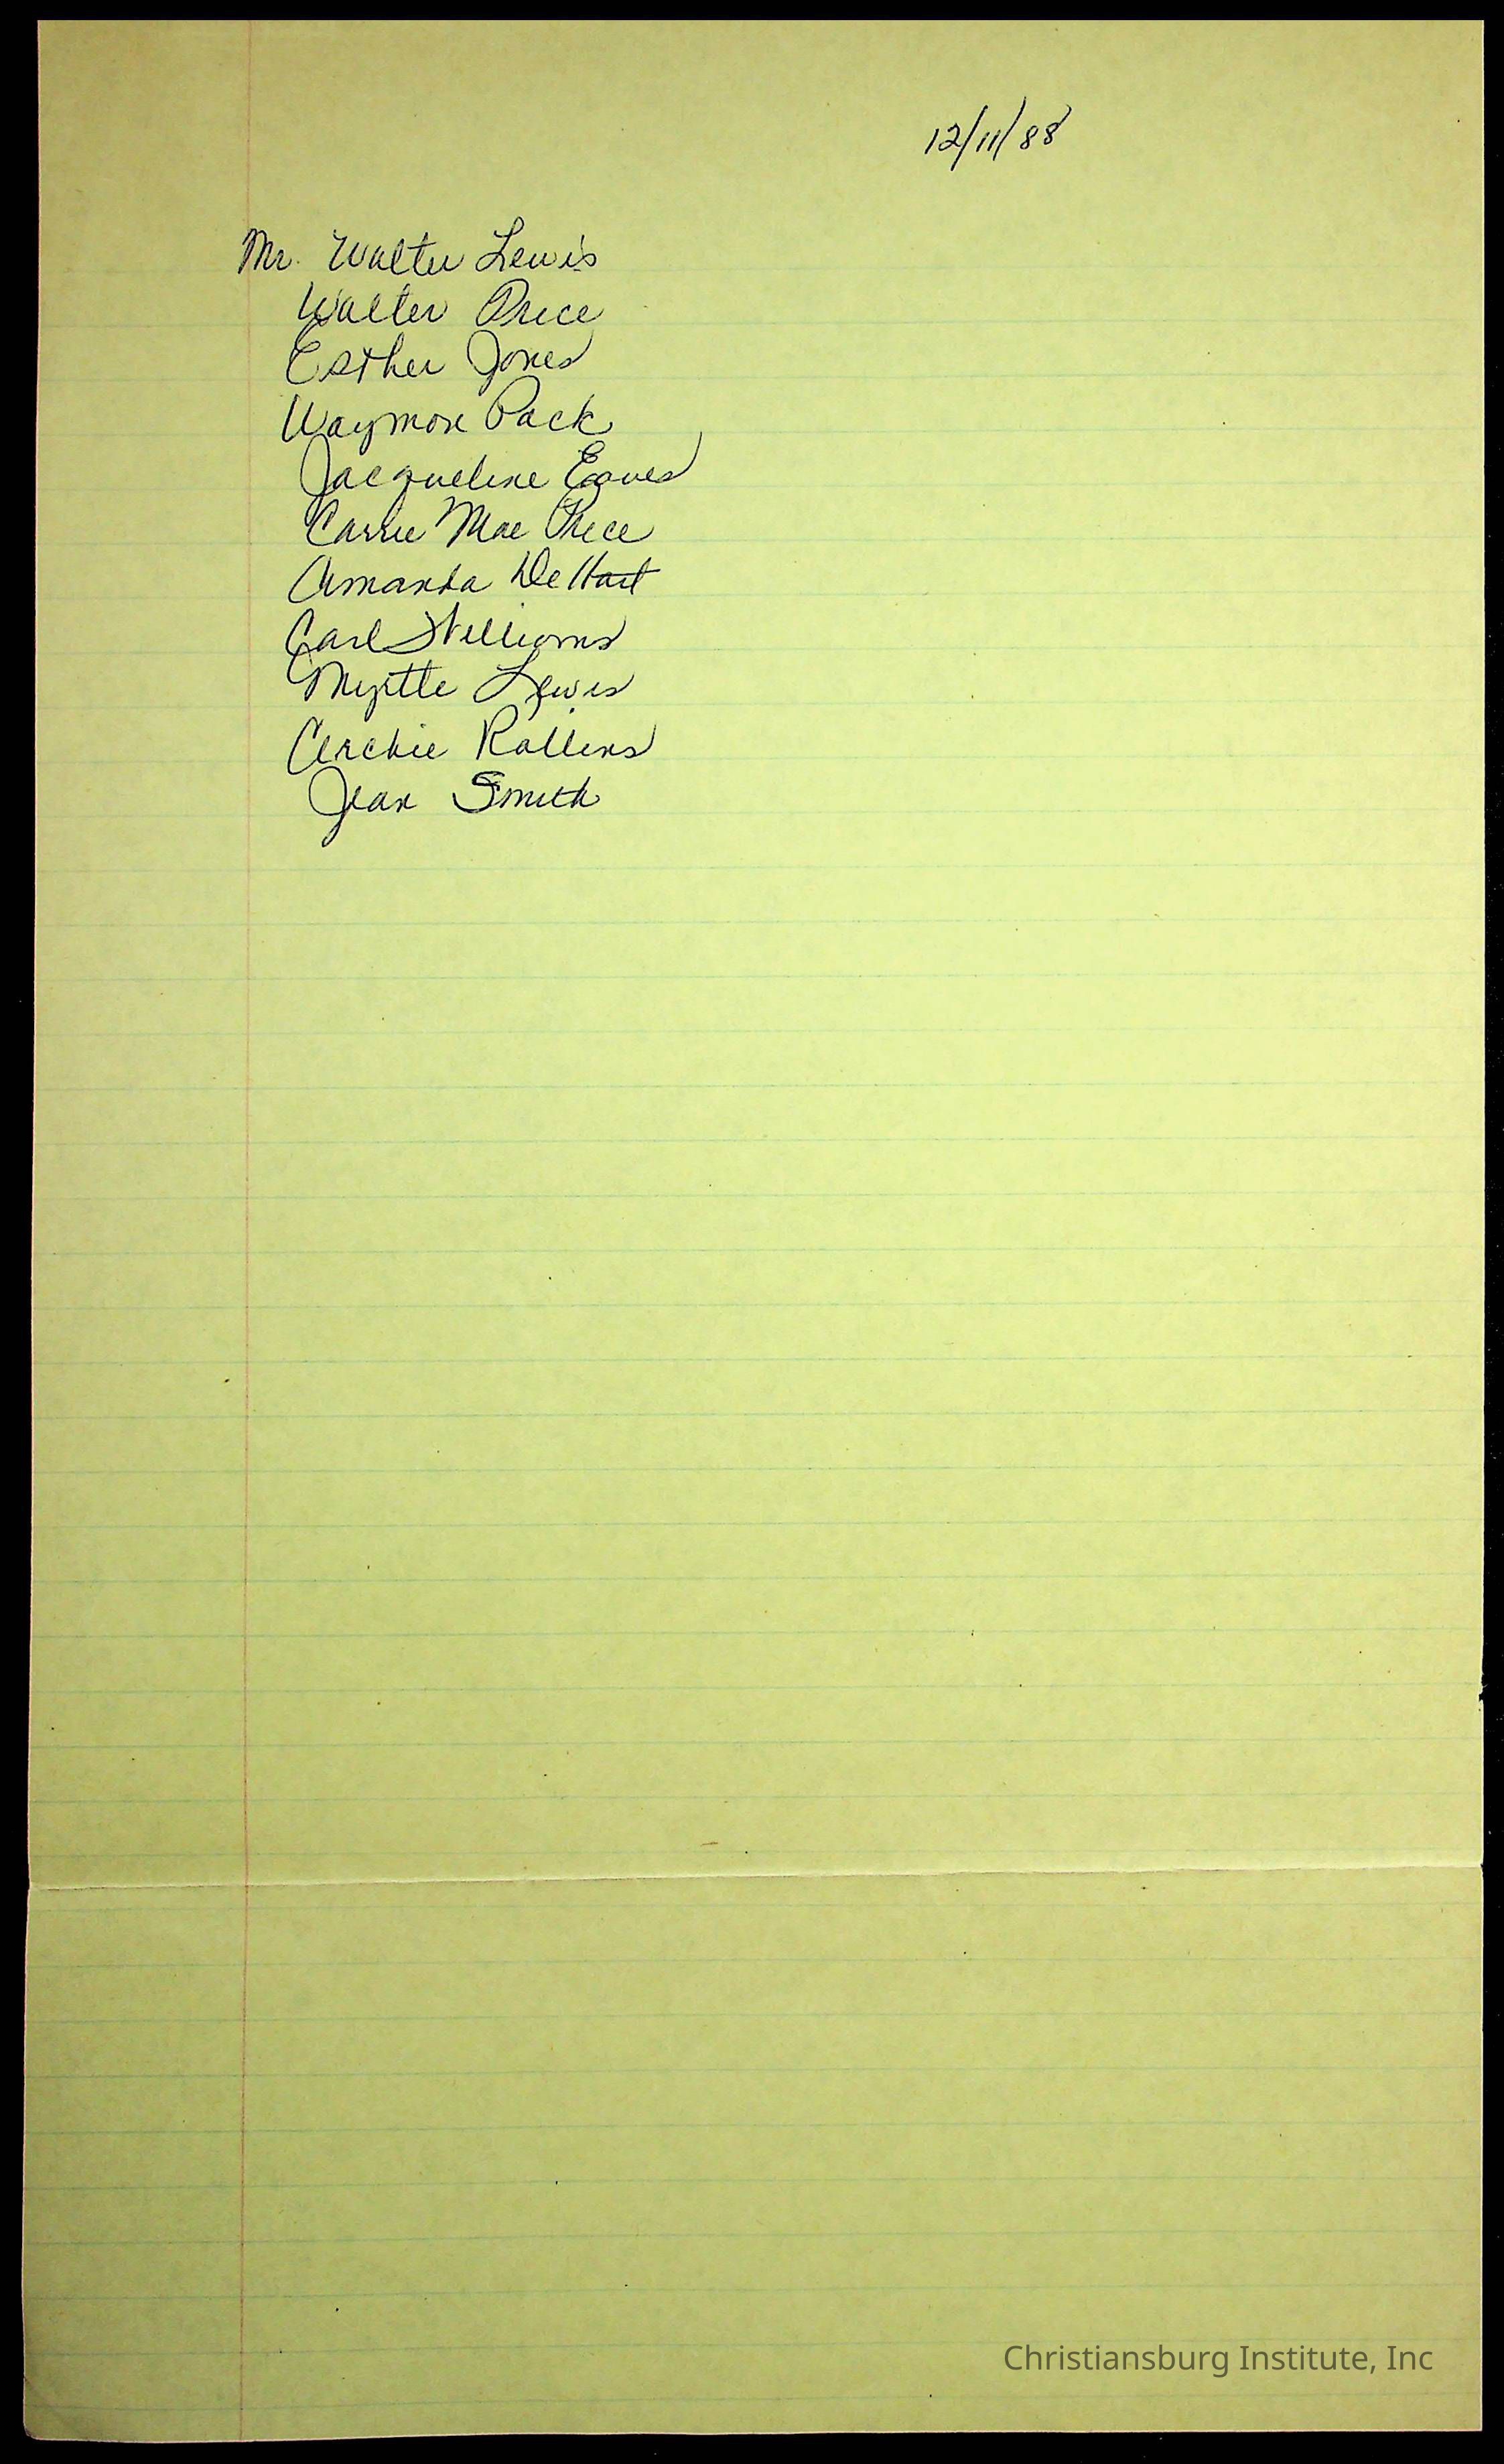 12/11/88
Mr. Walter Lewis
Walter Price
Esther Jones
Waymon Pack
Jacqueline Eaves
Carrie Mae Price
Amanda DeHart
Carl Williams
Myrtle Lewis
Archie Rollins
Jean Smith
Christiansburg Institute, Inc